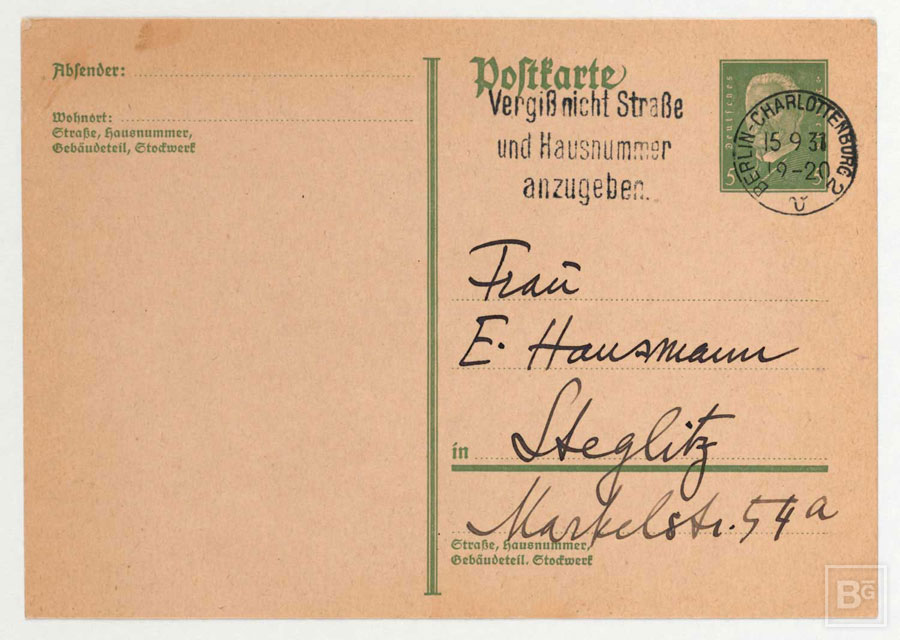 Absender:
Wohnort:
Straße, Hausnummer,
Gebäudeteil, Stockwerk
Postkarte
Vergiß nicht Straße
und Hausnummer
anzugeben.
Deutsches
5 5
BERLIN-CHARLOTTENBURG 2
15.9.31
19-20
v
Frau
E. Hausmann
in Steglitz
Markelstr. 54a
Straße, Hausnummer,
Gebäudeteil. Stockwerk
BG